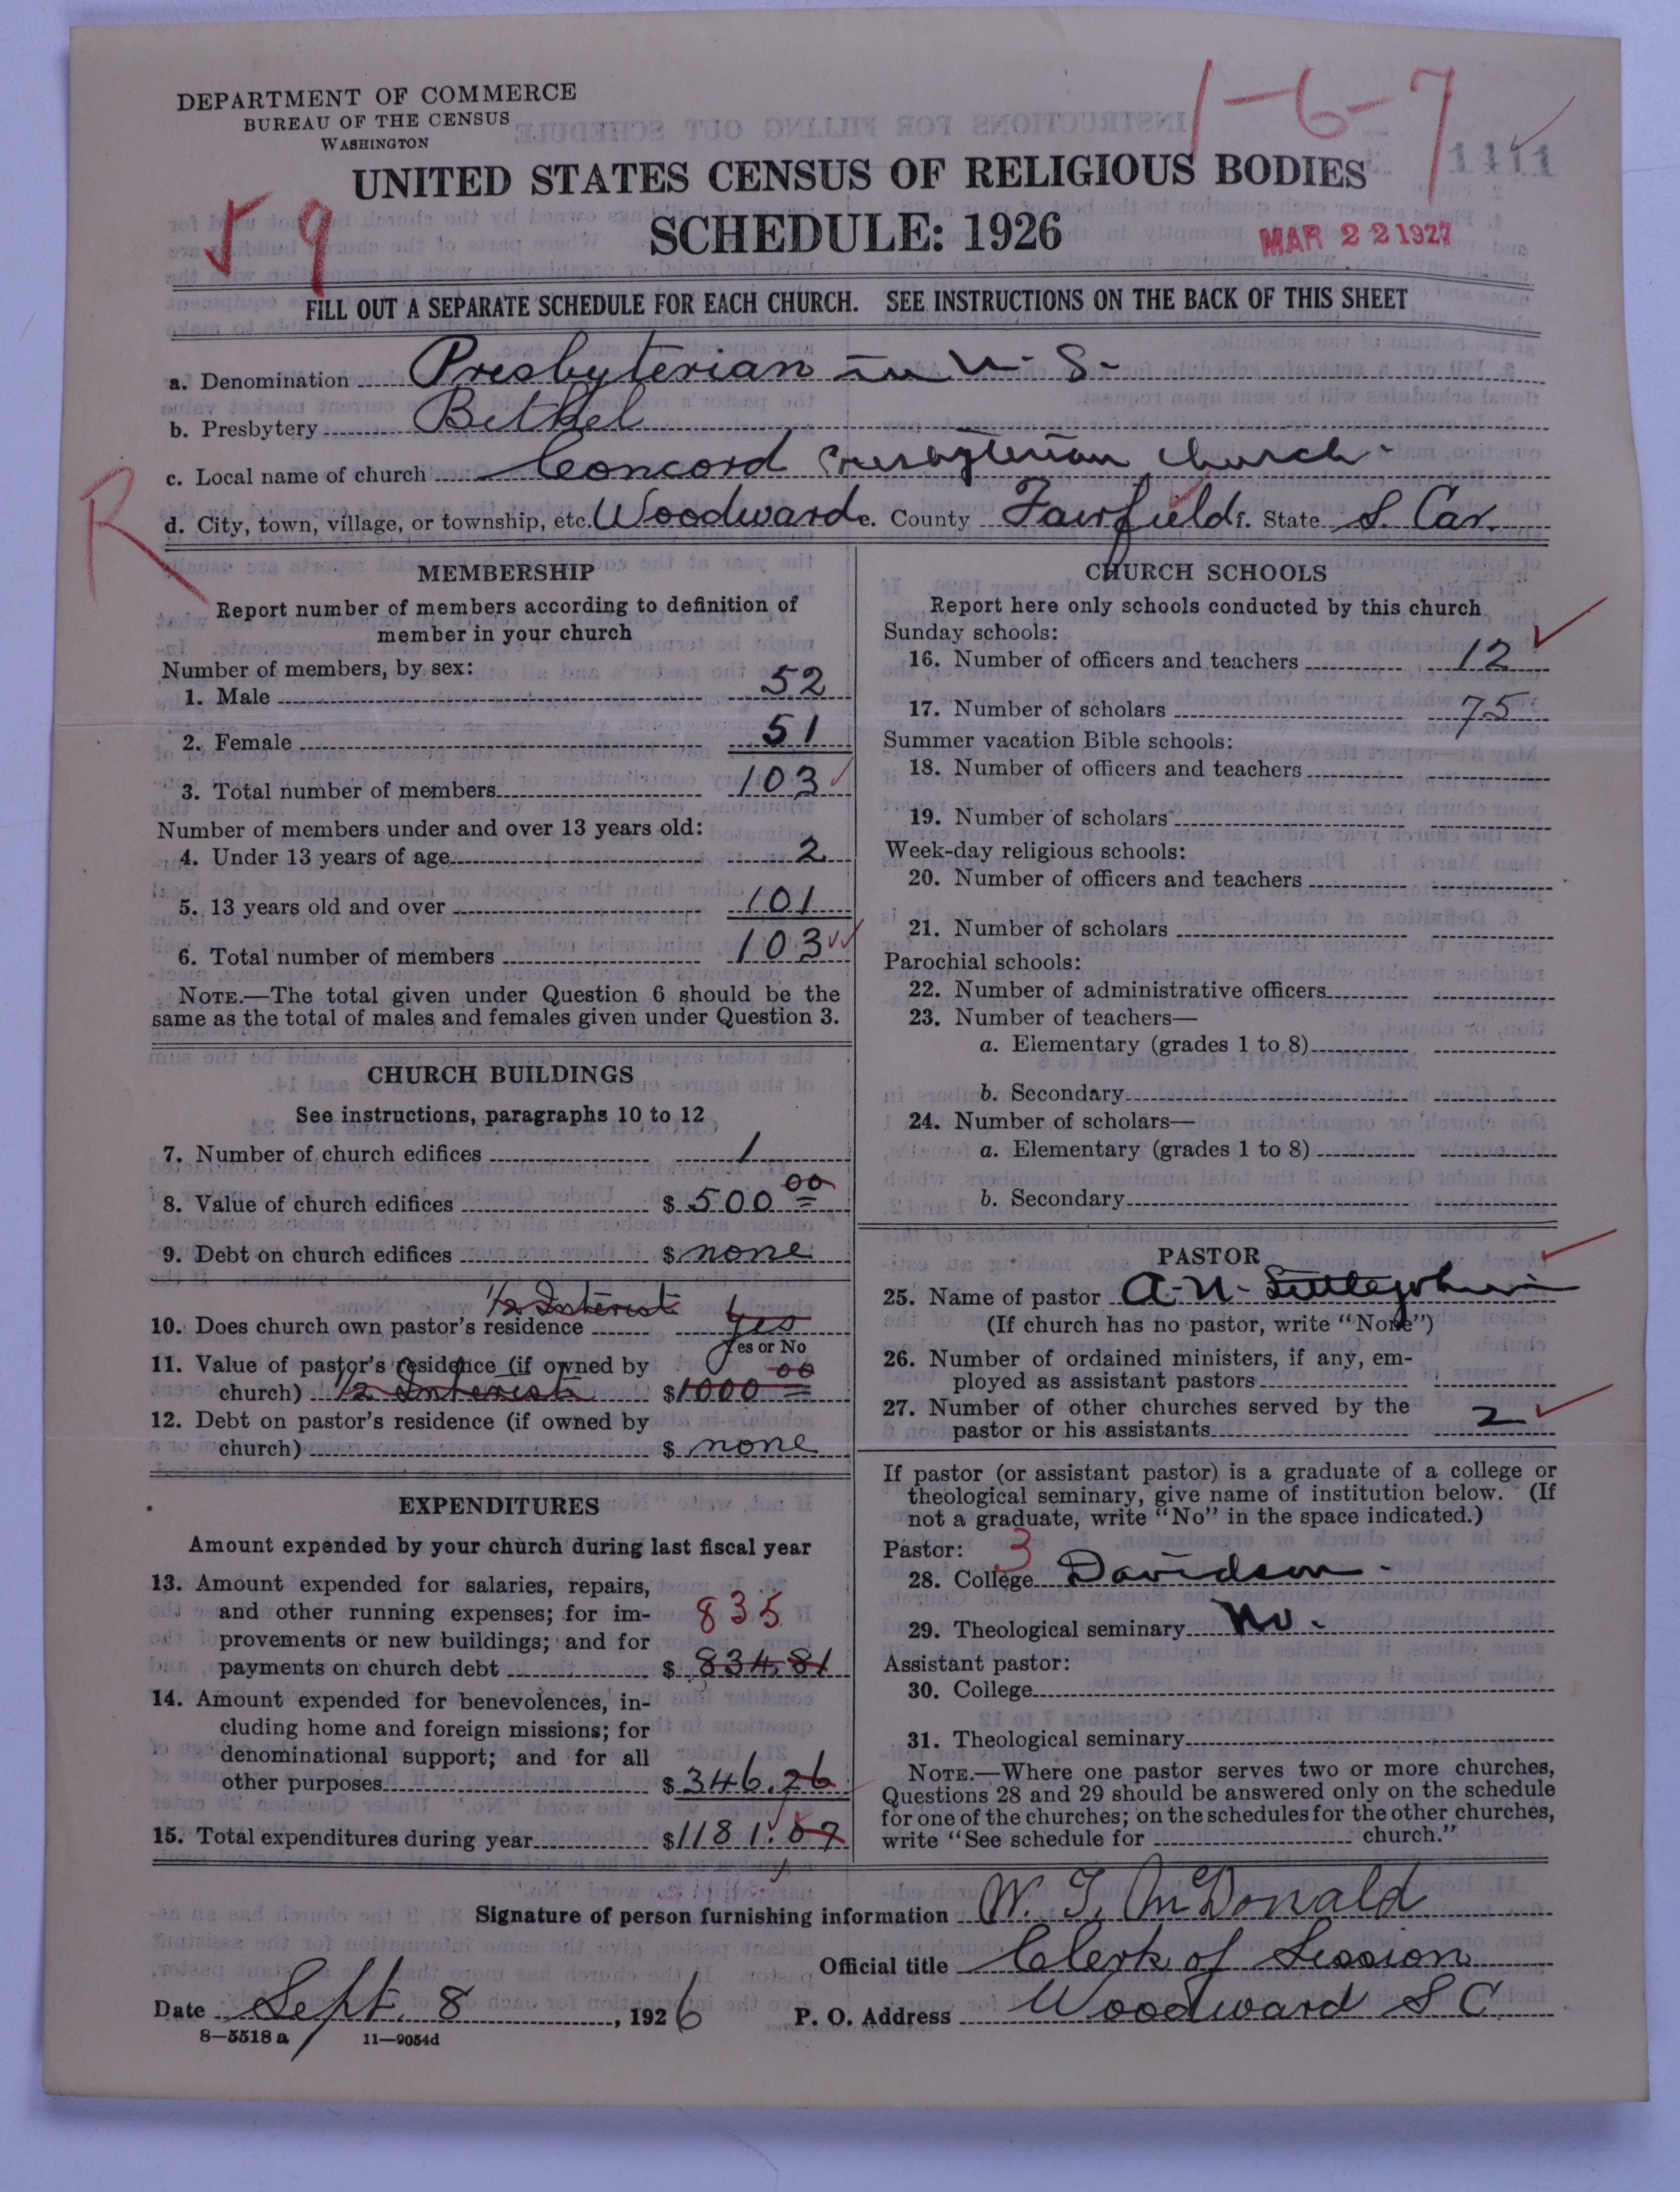 DEPARTMENT OF COMMERCE
BUREAU OF THE CENSUS
WASHINGTON
1-6-7
1411
UNITED STATES CENSUS OF RELIGIOUS BODIES
9
SCHEDULE: 1926
MAR 22 1927
FILL OUT A SEPARATE SCHEDULE FOR EACH CHURCH. SEE INSTRUCTIONS ON THE BACK OF THIS SHEET
a. Denomination Presbyterian in U. S.
b. Presbytery Bethel
c. Local name of church Concord Presbyterian Church
R
d. City, town, village, or township, etc. Woodward e. County Fairfield f. State S. Car.
MEMBERSHIP
Report number of members according to definition of
member in your church
Number of members, by sex:
1. Male 52
2. Female 51
3. Total number of members 103
Number of members under and over 13 years old:
4. Under 13 years of age 2
5. 13 years old and over 101
6. Total number of members 103
NOTE.—The total given under Question 6 should be the
same as the total of males and females given under Question 3.
CHURCH BUILDINGS
See instructions, paragraphs 10 to 12
7. Number of church edifices 1
8. Value of church edifices $500 00
9. Debt on church edifices $ none
1/2 Interest
10. Does church own pastor's residence Yes
Yes or No
11. Value of pastor's residence (if owned by
church) 1/2 Interest $1000 00
12. Debt on pastor's residence (if owned by
church) $ none
EXPENDITURES
Amount expended by your church during last fiscal year
13. Amount expended for salaries, repairs,
and other running expenses; for im-
835
provements or new buildings; and for
payments on church debt $ 834.81
14. Amount expended for benevolences, in-
cluding home and foreign missions; for
denominational support; and for all
other purposes $346.26
15. Total expenditures during year $1181.07
CHURCH SCHOOLS
Report here only schools conducted by this church
Sunday schools:
16. Number of officers and teachers 12
17. Number of scholars 75
Summer vacation Bible schools:
18. Number of officers and teachers
19. Number of scholars
Week-day religious schools:
20. Number of officers and teachers
21. Number of scholars
Parochial schools:
22. Number of administrative officers
23. Number of teachers—
a. Elementary (grades 1 to 8)
b. Secondary
24. Number of scholars—
a. Elementary (grades 1 to 8)
b. Secondary
PASTOR
25. Name of pastor A. N. Littlejohn
(If church has no pastor, write "None")
26. Number of ordained ministers, if any, em-
ployed as assistant pastors
27. Number of other churches served by the
pastor or his assistants 2
If pastor (or assistant pastor) is a graduate of a college or
theological seminary, give name of institution below. (If
not a graduate, write "No" in the space indicated.)
Pastor: 3
28. College Davidson
29. Theological seminary No.
Assistant pastor:
30. College
31. Theological seminary
NOTE.—Where one pastor serves two or more churches,
Questions 28 and 29 should be answered only on the schedule
for one of the churches; on the schedules for the other churches,
write "See schedule for church."
Signature of person furnishing information W. T. McDonald
Official title Clerk of Session
Date Sept. 8, 1926 P. O. Address Woodward S C
8—5518 a 11—9054d